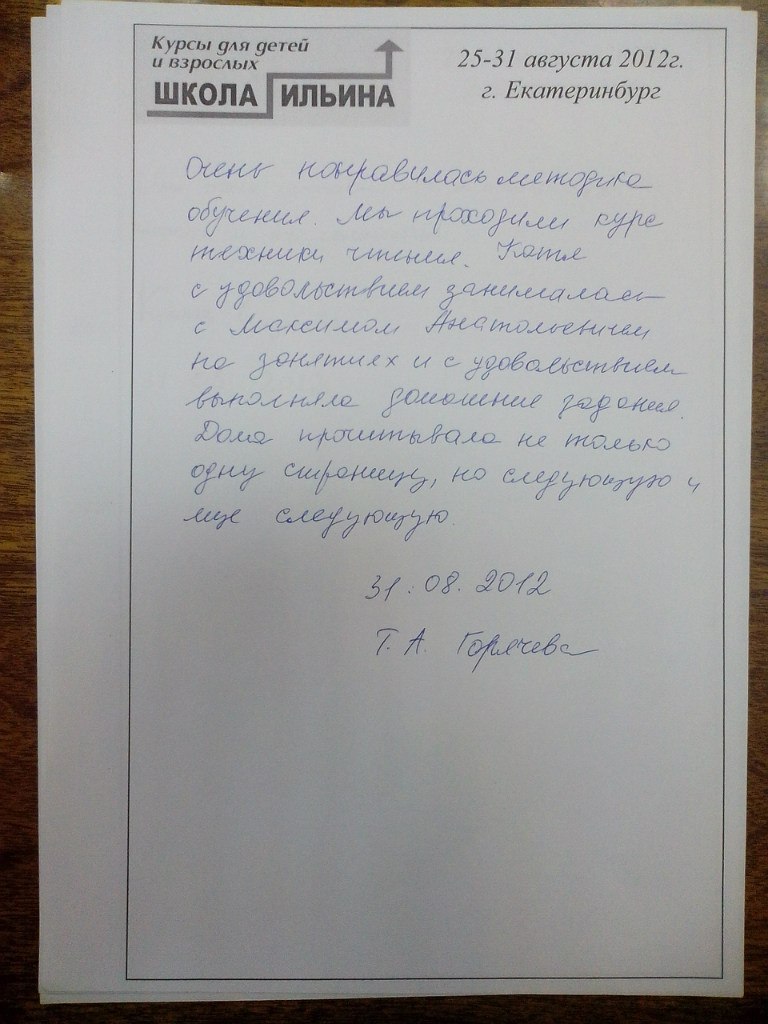 Курсы для детей
и взрослых
ШКОЛА ИЛЬИНА
25-31 августа 2012г.
г. Екатеринбург
Очень понравилась методика
обучения. Мы проходили курс
техники чтения. Катя
с удовольствием занималась
с Максимом Анатольевичем
на занятиях и с удовольствием
выполняла домашние задания.
Дома прочитывала не только
одну страницу, но следующую и
еще следующую.
31.08.2012
Т.А. Горячева